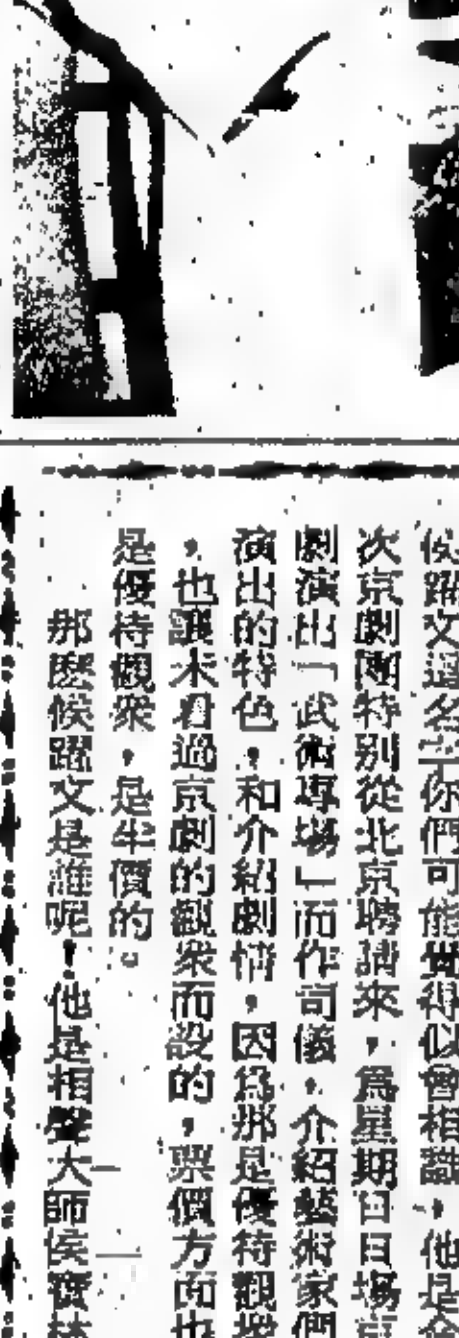 侯躍文這名字你們可能覺得似曾相識，他是今
次京劇團特别從北京聘請來，爲星期日日場京
劇演出「武術專場」而作司儀，介紹藝術家們
演出的特色，和介紹劇情，因爲那是優待觀衆
，也讓未看過京劇的觀衆而設的，票價方面也
是優待觀衆，是半價的。
那麽侯躍文是誰呢！他是相聲大師侯寶林